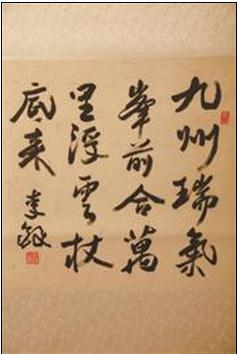 九州瑞氣
峯前合萬
里浮雲杖
底来
李敏